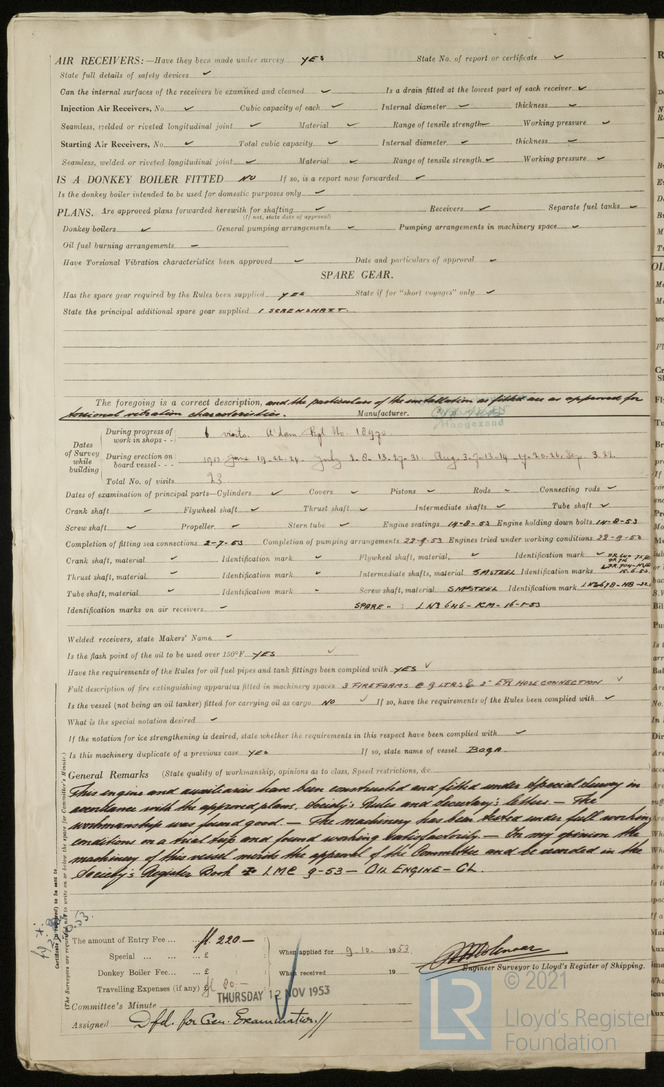 AIR RECEIVERS:—Have they been made under survey YES State No. of report or certificate ✓
State full details of safety devices ✓
Can the internal surfaces of the receivers be examined and cleaned ✓ Is a drain fitted at the lowest part of each receiver ✓
Injection Air Receivers, No. ✓ Cubic capacity of each ✓ Internal diameter ✓ thickness ✓
Seamless, welded or riveted longitudinal joint ✓ Material ✓ Range of tensile strength ✓ Working pressure ✓
Starting Air Receivers, No. ✓ Total cubic capacity ✓ Internal diameter ✓ thickness ✓
Seamless, welded or riveted longitudinal joint ✓ Material ✓ Range of tensile strength ✓ Working pressure ✓
IS A DONKEY BOILER FITTED NO If so, is a report now forwarded ✓
Is the donkey boiler intended to be used for domestic purposes only ✓
PLANS. Are approved plans forwarded herewith for shafting ✓ Receivers ✓ Separate fuel tanks ✓
(If not, state date of approval)
Donkey boilers ✓ General pumping arrangements ✓ Pumping arrangements in machinery space ✓
Oil fuel burning arrangements ✓
Have Torsional Vibration characteristics been approved ✓ Date and particulars of approval ✓
SPARE GEAR.
Has the spare gear required by the Rules been supplied YES State if for "short voyages" only ✓
State the principal additional spare gear supplied 1 SCREWSHAFT.
The foregoing is a correct description, and the particulars of the installation as fitted are as approved for
torsional vibration characteristics. Manufacturer.
Hoogezand
Dates of Survey while building
During progress of work in shops - - 6 visits. A'dam Rpt No. 18970
During erection on board vessel - - - 1953 June 19-22-24- July 2-8-13-27-31- Aug. 3-7-13-14-17-20-26- Sep. 3.22.
Total No. of visits 23
Dates of examination of principal parts—Cylinders ✓ Covers ✓ Pistons ✓ Rods ✓ Connecting rods ✓
Crank shaft ✓ Flywheel shaft ✓ Thrust shaft ✓ Intermediate shafts ✓ Tube shaft ✓
Screw shaft ✓ Propeller ✓ Stern tube ✓ Engine seatings 14-8-53 Engine holding down bolts 14-8-53
Completion of fitting sea connections 2-7-53 Completion of pumping arrangements 22-9-53 Engines tried under working conditions 22-9-53
Crank shaft, material ✓ Identification mark ✓ Flywheel shaft, material, ✓ Identification mark ✓
Thrust shaft, material ✓ Identification mark ✓ Intermediate shafts, material SMSTEEL Identification marks
Tube shaft, material ✓ Identification mark ✓ Screw shaft, material SMSTEEL Identification mark
Identification marks on air receivers ✓ SPARE : LNo 646-KM-16-1-53
Welded receivers, state Makers' Name ✓
Is the flash point of the oil to be used over 150°F YES ✓
Have the requirements of the Rules for oil fuel pipes and tank fittings been complied with YES ✓
Full description of fire extinguishing apparatus fitted in machinery spaces 3 FIREFOAMS @ 9 LTRS & 2" HOSE CONNECTION ✓
Is the vessel (not being an oil tanker) fitted for carrying oil as cargo NO ✓ If so, have the requirements of the Rules been complied with ✓
What is the special notation desired ✓
If the notation for ice strengthening is desired, state whether the requirements in this respect have been complied with ✓
Is this machinery duplicate of a previous case YES If so, state name of vessel BAGA
General Remarks (State quality of workmanship, opinions as to class, Speed restrictions, &c.
This engine and auxiliaries have been constructed and fitted under Special Survey in
accordance with the approved plans, Society's Rules and Secretary's letters — The
workmanship was found good. — The machinery has been tested under full working
conditions on a trial trip and found working satisfactorily — In my opinion the
machinery of this vessel merits the approval of the Committee and be recorded in the
Society's Register Book LMC 9-53 — OIL ENGINE — CL.
(The Surveyors are requested not to write on or below the space for Committee's Minute.)
Certificate to be sent to
The amount of Entry Fee ... fl. 220.— When applied for 9-10- 1953
Special ... ... £
Donkey Boiler Fee... £ When received 19
Travelling Expenses (if any) £ fl 80.—
Engineer Surveyor to Lloyd's Register of Shipping.
THURSDAY 12 NOV 1953
Committee's Minute
Assigned Dfd. for Gen. Examination //
LR
© 2021
Lloyd's Register
Foundation